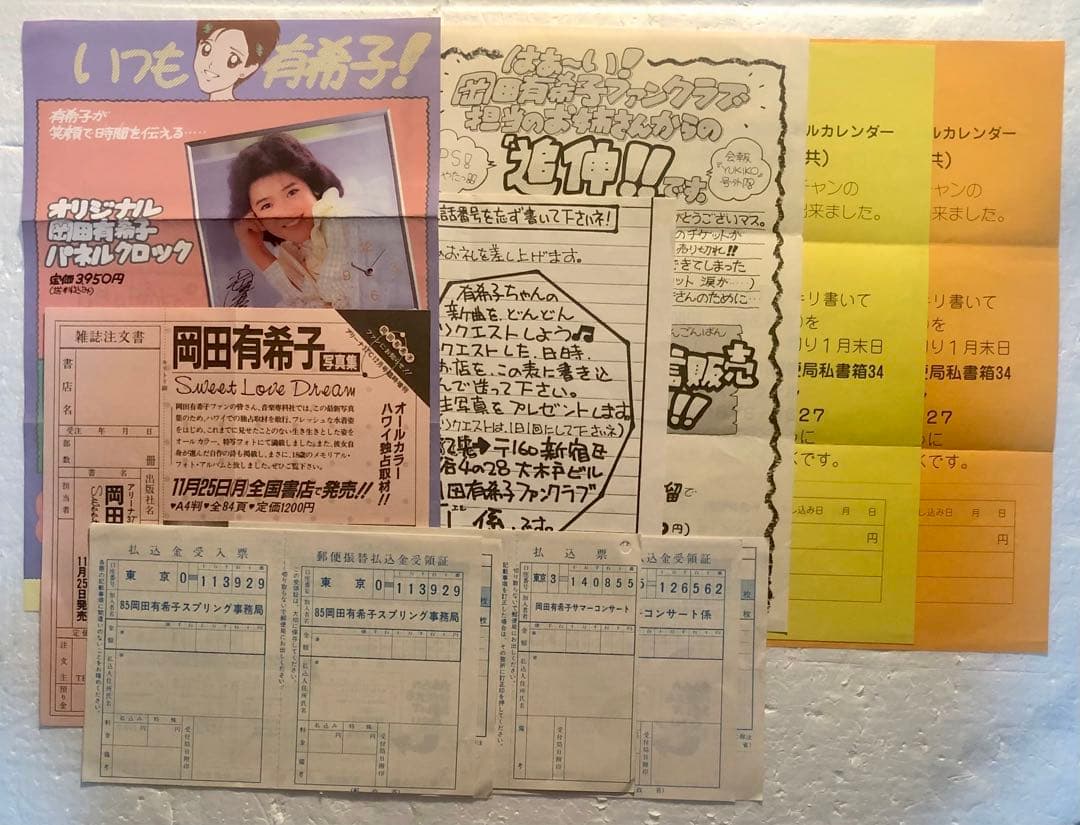 いつも有希子!
有希子が
笑顔で時間を伝える……
オリジナル
岡田有希子
パネルクロック
定価3,950円
雑誌注文書
書店名
受注 年 月 日
部数
冊
担当者
書名
出版社名
11月25日発売
注文主
岡田有希子
写真集
Sweet Love Dream
岡田有希子ファンの皆さん、音楽専科社では、この最新写真
集のため、ハワイでの独占取材を敢行。フレッシュな水着姿
をはじめ、これまでに見せたことのない生き生きとした姿を
オールカラー、特写フォトにて満載しました。また、彼女自
身が選んだ自作の詩も掲載し、まさに、18歳のメモリアル・
フォト・アルバムと致しました。ぜひご覧下さい。
オールカラー
ハワイ独占取材!!
11月25日(月)全国書店で発売!!
♥A4判♥全84頁♥定価1200円
はぁ〜い!
岡田有希子ファンクラブ
担当のお姉さんからの
追伸!!です。
会報
YUKIKO
号外版
話番号を忘ず書いて下さいネ!
お礼を差し上げます。
有希子ちゃんの
新曲を、どんどん
リクエストしよう♫
クエストした、日時、
お店を、この表に書き込
んで送って下さい。
生写真をプレゼントします
リクエストは、1日1回にして下さいネ)
〒160新宿区
4の28 大木戸ビル
田有希子ファンクラブ
係、です。
がとうございマス。
のチケットが
売り切れ!!
きてしまった
ット 涙か…)
さんのために…
販売
ルカレンダー
共)
チャンの
出来ました。
キリ書いて
)を
り1月末日
便局私書箱34
27
に
くです。
し込み日 月 日
円
ルカレンダー
共)
ャンの
来ました。
リ書いて
を
り1月末日
局私書箱34
27
に
です。
込み日 月 日
円
払込金受入票
口座番号
東京0=113929
加入者名
85岡田有希子スプリング事務局
金額
払込人住所氏名
料金
備考
受付局日附印
郵便振替払込金受領証
口座番号
東京0=113929
加入者名
85岡田有希子スプリング事務局
金額
払込人住所氏名
料金
備考
受付局日附印
払込票
口座番号
東京3=140855
加入者名
岡田有希子サマーコンサート
金額
払込人住所氏名
備考
受付局日附印
込金受領証
126562
コンサート係
受付局日附印